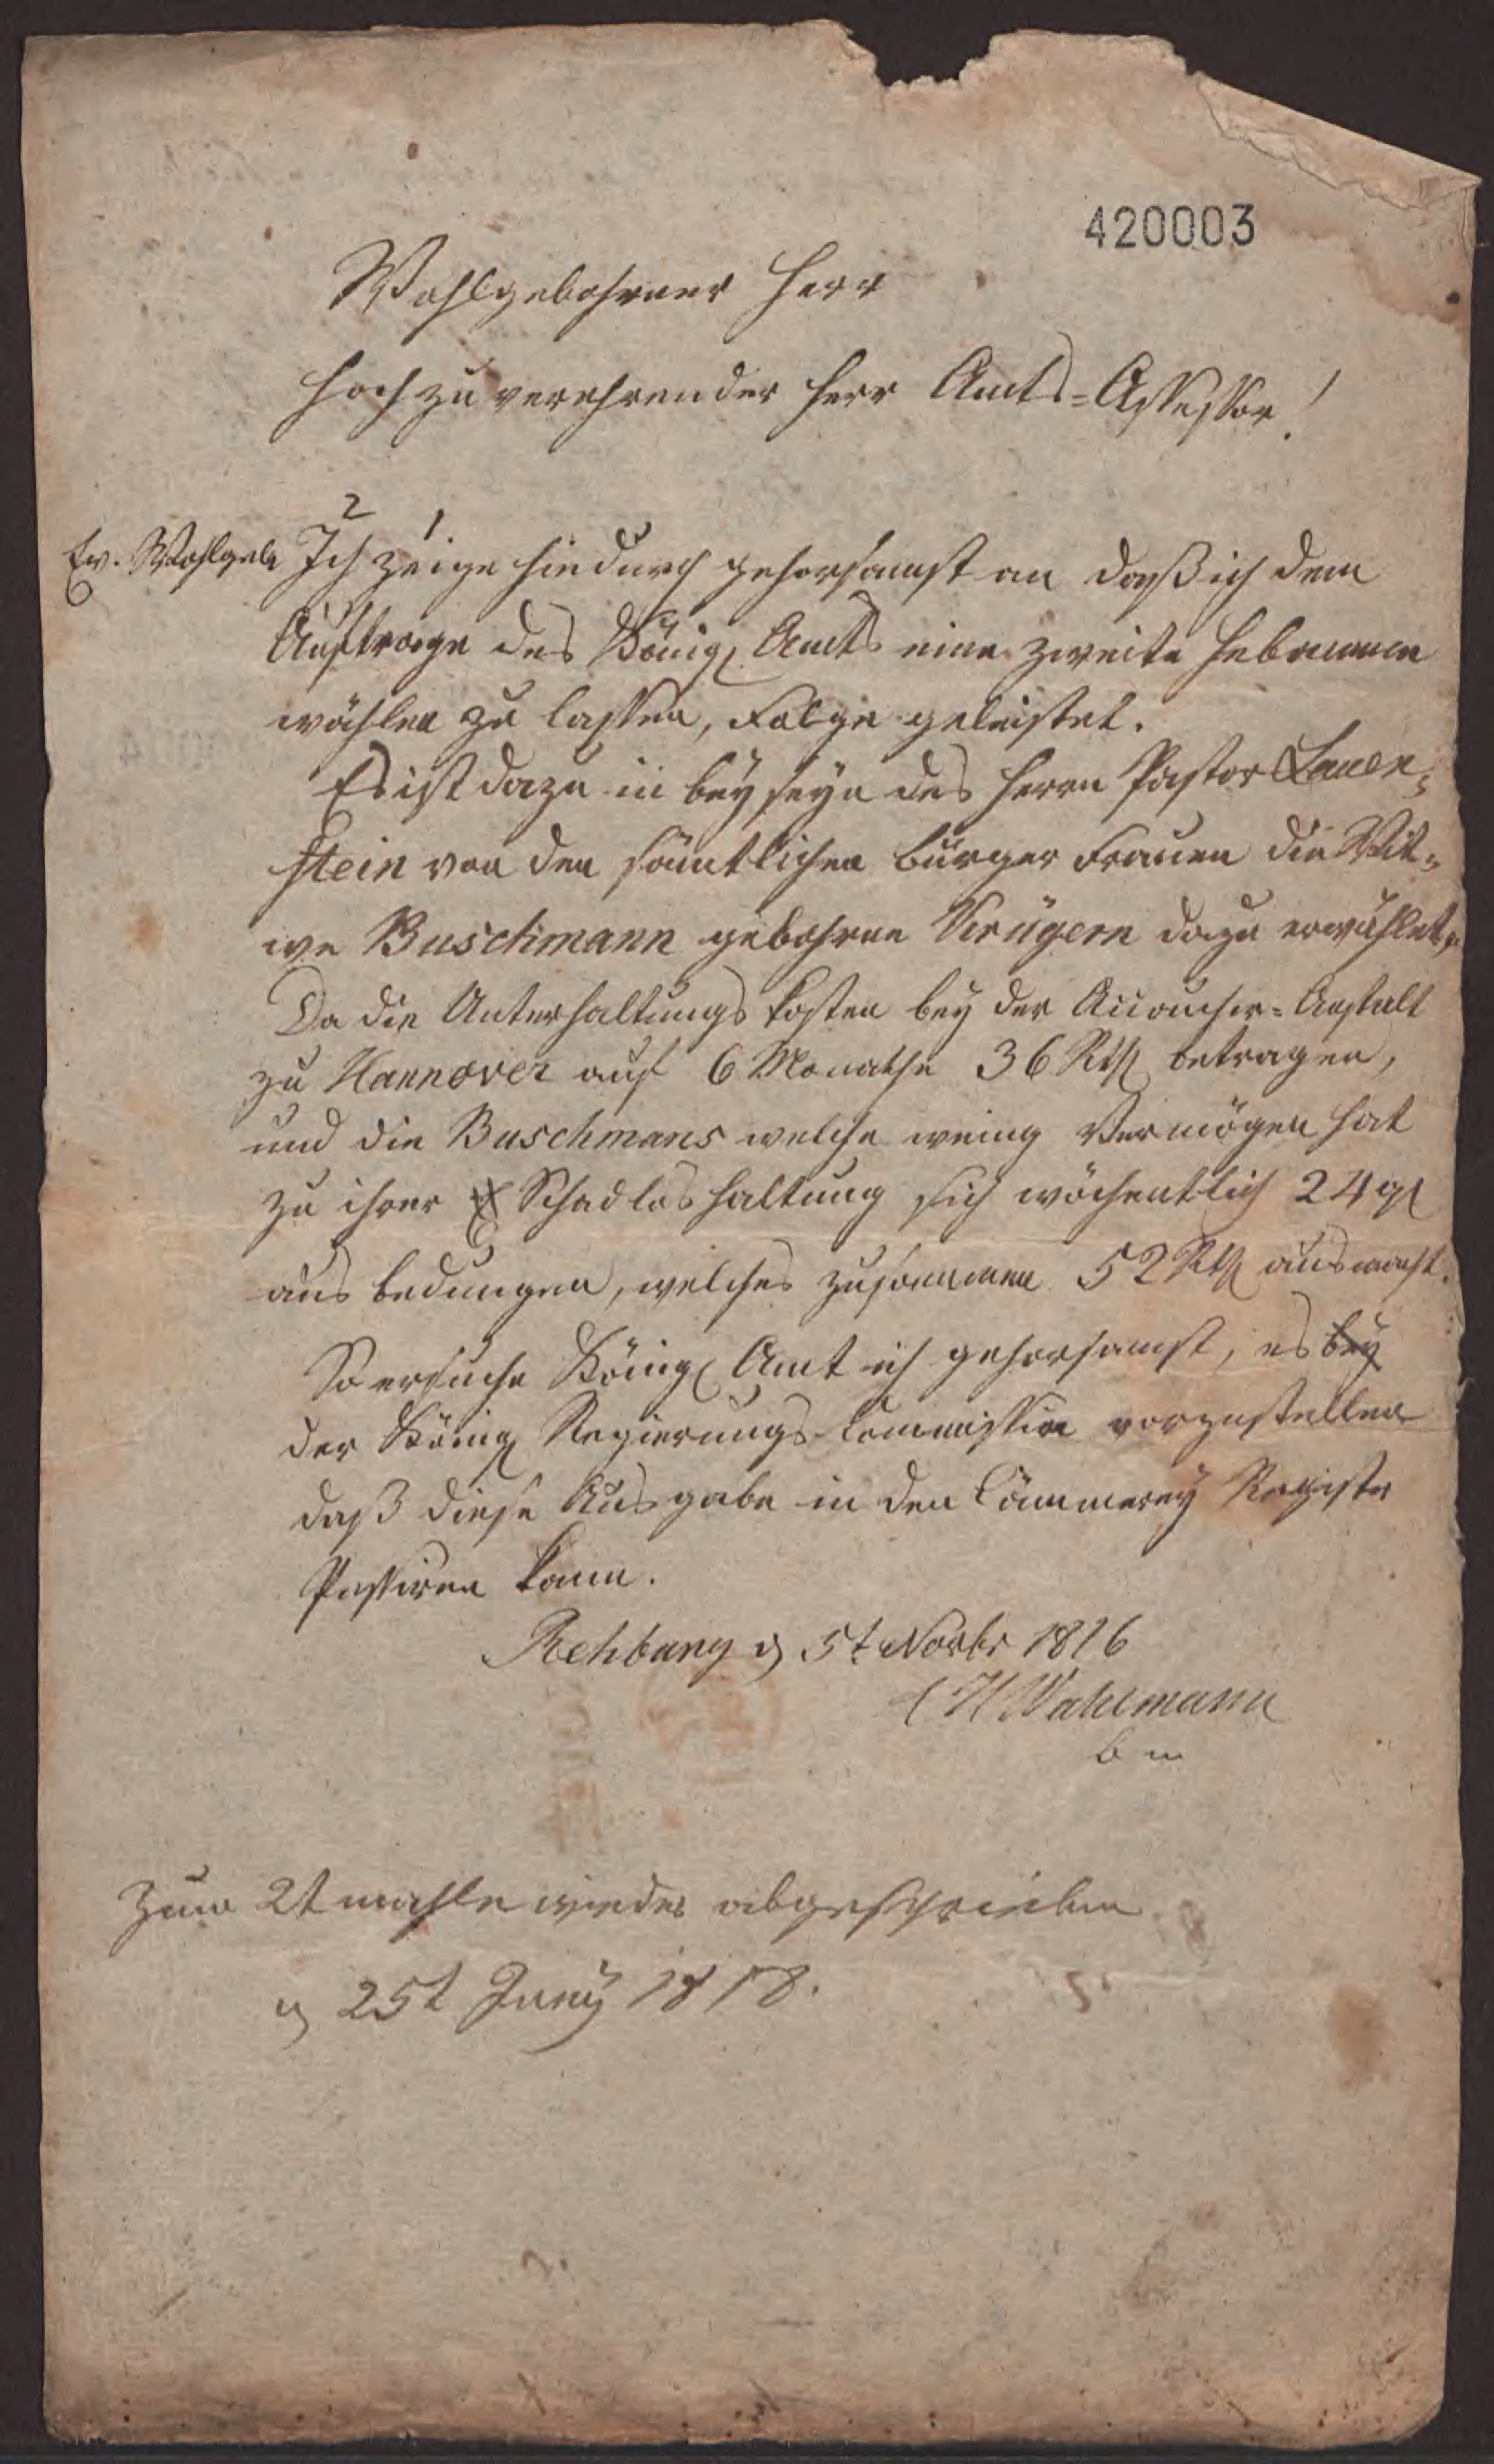 420003
Wohlgebohrner Herr
Hochzuverehrender Herr Amts=Assessor!
2 1
Ew. Wohlgeb Ich zeige hiedurch gehorsamst an daß ich dem
Auftrage des Königl Amts eine zweite Hebamme
wählen zu lassen, Folge geleistet.
Es ist dazu in beyseyn des Herrn Pastor Lauen=
stein von den sämtlichen bürger Frauen die Wit=
we Buschmann gebohrne Krügern dazu erwählet,
Da die Unterhaltungs kosten bey der Accouchir=Anstalt
zu Hannover auf 6 Monathe 36 Rth betragen,
und die Buschmans welche wenig Vermögen hat
zu ihrer Schadloshaltung sich wöchentlich 24 gl
aus bedungen, welches zusammen 52 Rth ausmacht.
So ersuche Königl Amt ich gehorsamst, es bey
der Königl Regierungs-Commission vorzustellen
daß diese Ausgabe in den Cämmerey Register
Passiren kann.
Rehburg d 5t Novbr 1816
C H Wahlmann
b m
Zum 2t mahle wieder abgeschrieben
d 25t Juny 1818.